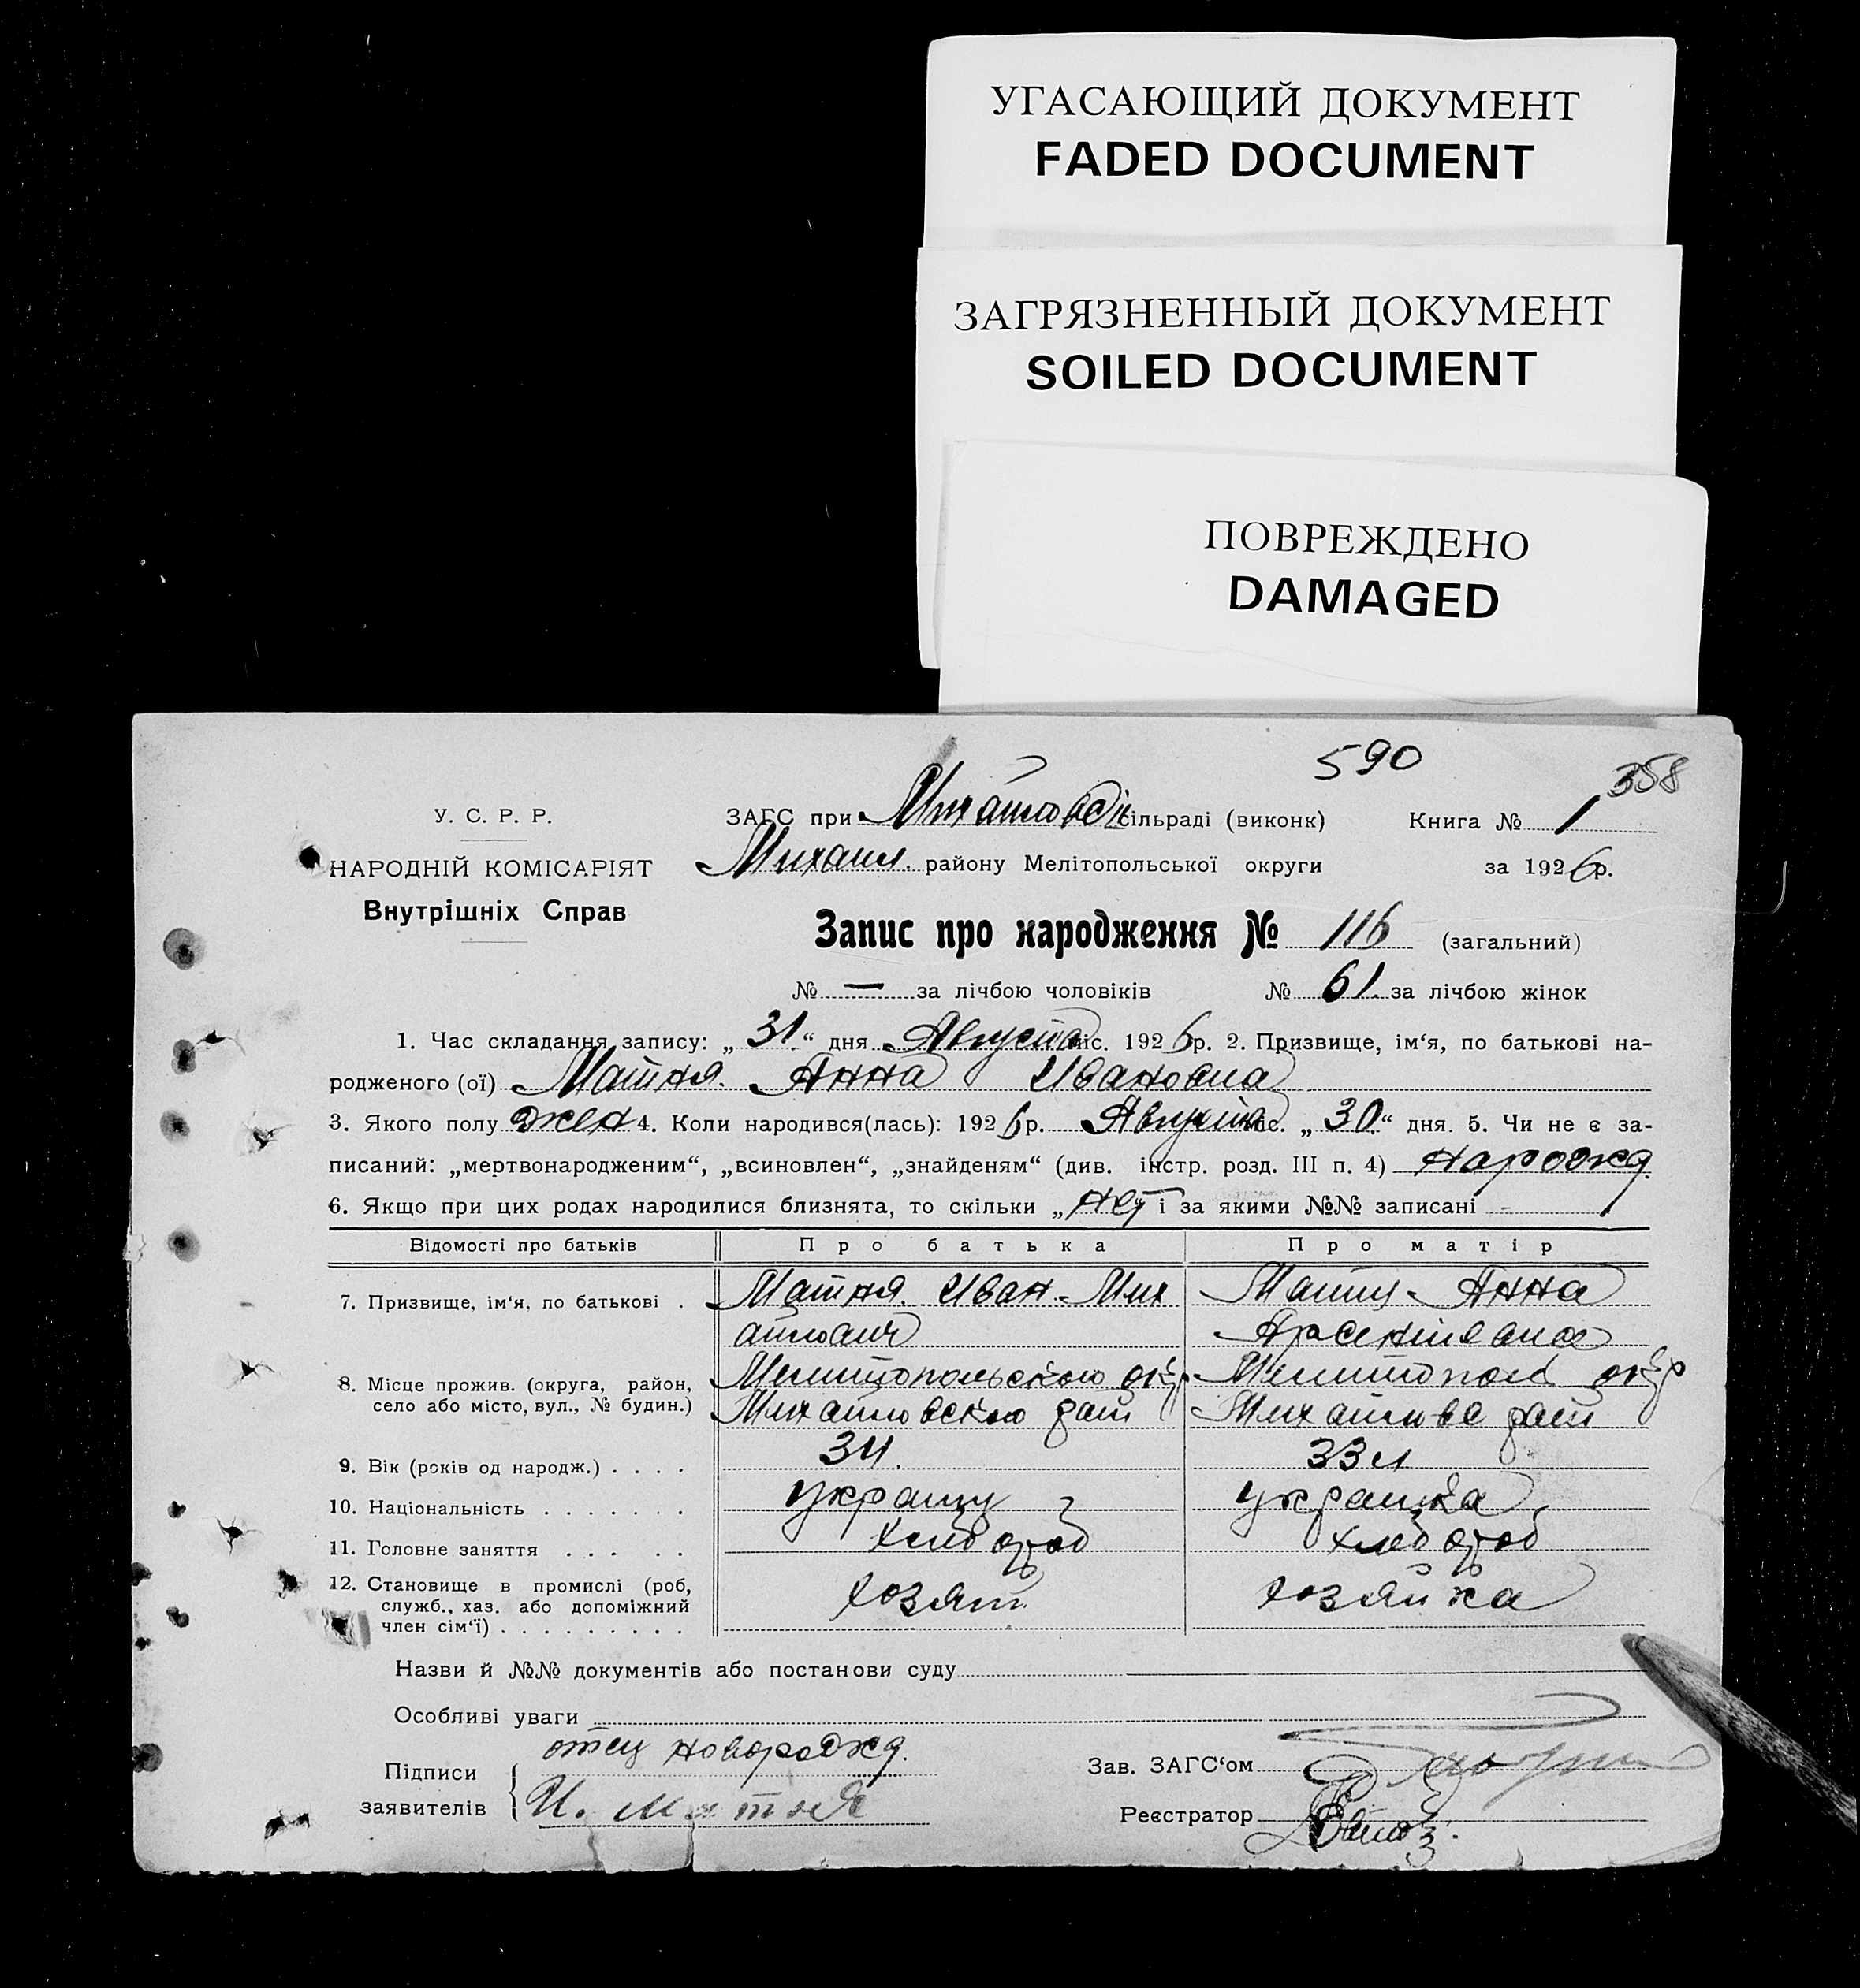 УГАСАЮЩИЙ ДОКУМЕНТ
FADED DOCUMENT
ЗАГРЯЗНЕННЫЙ ДОКУМЕНТ
SOILED DOCUMENT
ПОВРЕЖДЕНО
DAMAGED
590
358
У. С. Р. Р.
НАРОДНІЙ КОМІСАРІЯТ
Внутрішніх Справ
ЗАГС при Михайловск сільраді (виконк) Книга № 1
Михаил. району Мелітопольської округи за 1926 р.
Запис про народження № 116 (загальний)
№ — за лічбою чоловіків № 61. за лічбою жінок
1. Час складання запису: „31“ дня Августа міс. 1926 р. 2. Призвище, ім‘я, по батькові на-
родженого (ої) Матня. Анна Ивановна
3. Якого полу жен 4. Коли народився(лась): 1926 р. Августа міс. „30“ дня. 5. Чи не є за-
писаний: „мертвонародженим“, „всиновлен“, „знайденям“ (див. інстр. розд. III п. 4) Нарожд.
6. Якщо при цих родах народилися близнята, то скільки „нет і за якими №№ записані
Відомості про батьків Про батька Про матір
7. Призвище, ім‘я, по батькові . Матня. Иван Мих Анна
айлович
8. Місце прожив. (округа, район, село або місто, вул., № будин.) Мелитопольского окр. Мелитопол окр
Михайловского рай Михайловс рай
9. Вік (років од народж.) . . . . 34. 33 л
10. Національність . . . . . . . украинка
11. Головне заняття . . . . . хлебороб хлебороб
12. Становище в промислі (роб, служб., хаз. або допоміжний член сім‘ї) . . . . . . . . . хозяин хозяйка
Назви й №№ документів або постанови суду
Особливі уваги
отец новорожд.
Підписи
заявителів И. Матня
Зав. ЗАГС‘ом
Реєстратор